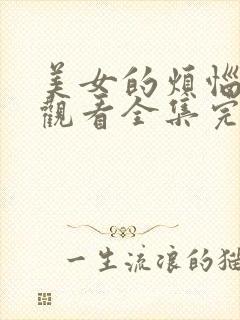 美女的煩惱
觀看全集完
一生流浪的猫